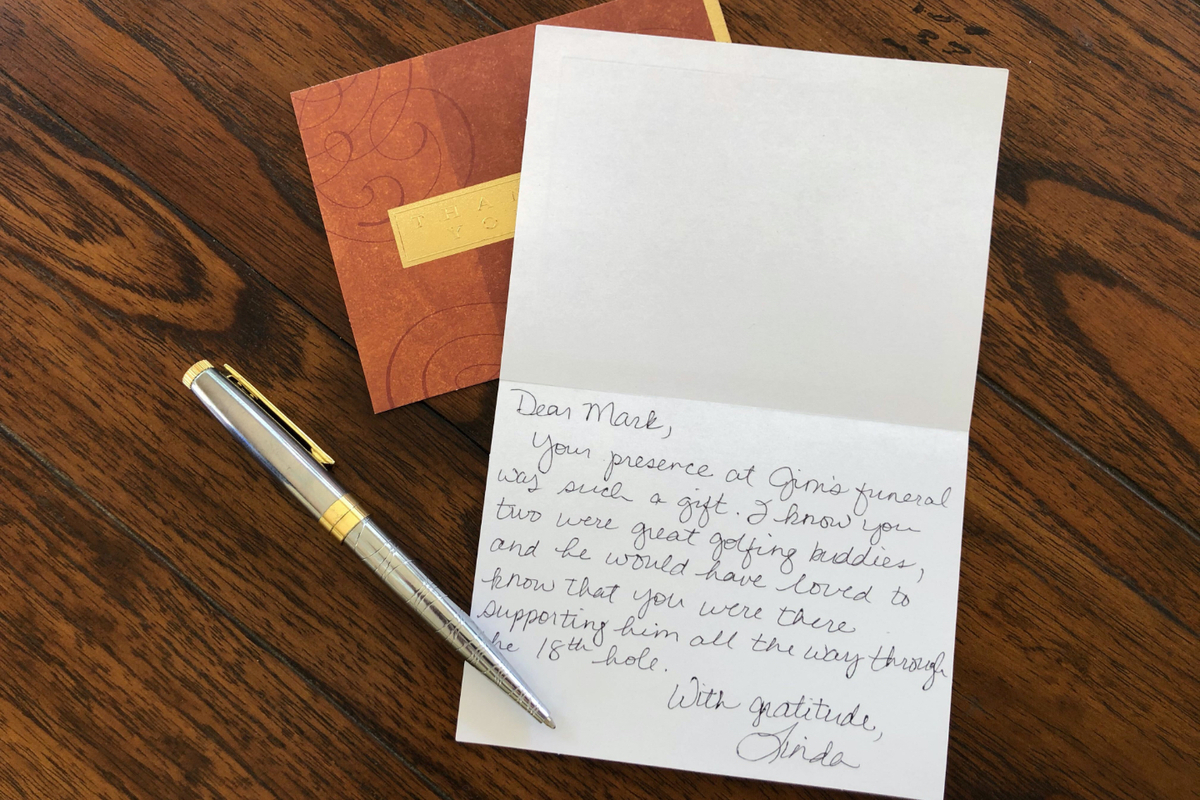 THA
YO
Dear Mark,
Your presence at Jim's funeral
was such a gift. I know you
two were great golfing buddies,
and he would have loved to
know that you were there
supporting him all the way through
he 18th hole.
With gratitude,
Linda